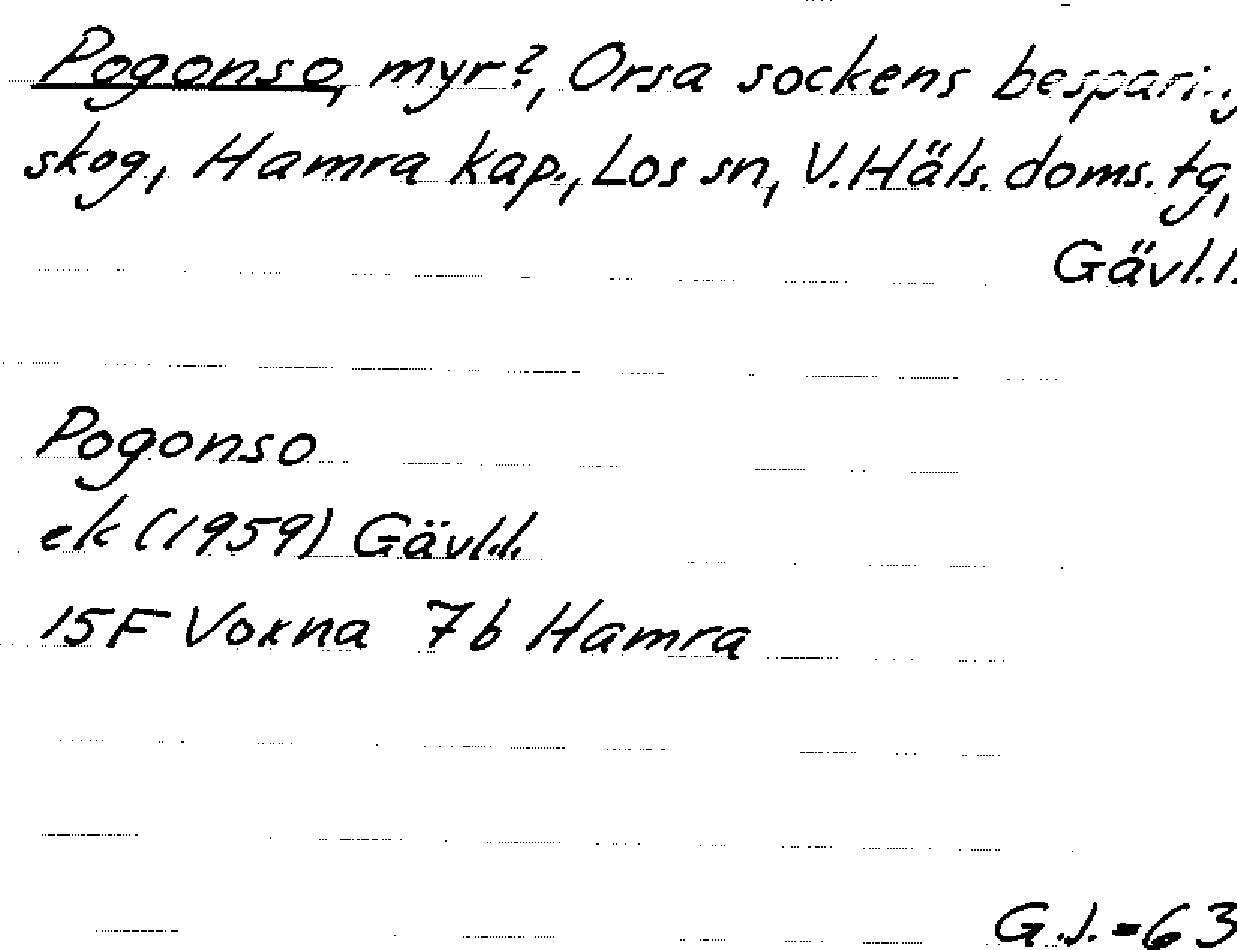 Pogonso, myr?, Orsa sockens
skog, Hamra kap., Los sn, V. Häls. doms. tg,
Gävl.l.
Pogonso
ek (1959) Gävl.l.
15F Voxna 7b Hamra
G.J. -63